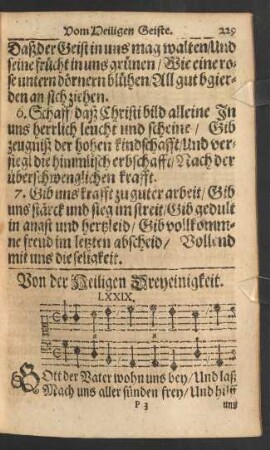 Vom Heiligen Geiste. 229
Daß der Geist in uns mag walten/Und
seine frücht in uns grünen/ Wie eine ro-
se untern dörnern blühen/All gut bgier-
den an sich ziehen.
6. Schaff/ daß Christi bild alleine In
uns herrlich leucht und scheine/ Gib
zeugniß der hohen kindschafft/Und ver-
siegl die himmlisch erbschafft/ Nach der
überschwenglichen krafft.
7. Gib uns krafft zu guter arbeit/ Gib
uns stärck und sieg im streit/Gib gedult
in angst und hertzleid/ Gib vollkomm-
ne freud im letzten abscheid/ Vollend
mit uns die seligkeit.
Von der Heiligen Dreyeinigkeit.
LXXIX.
GOtt der Vater wohn uns bey/Und laß
Mach uns aller sünden frey/Und hilff
P 3 uns